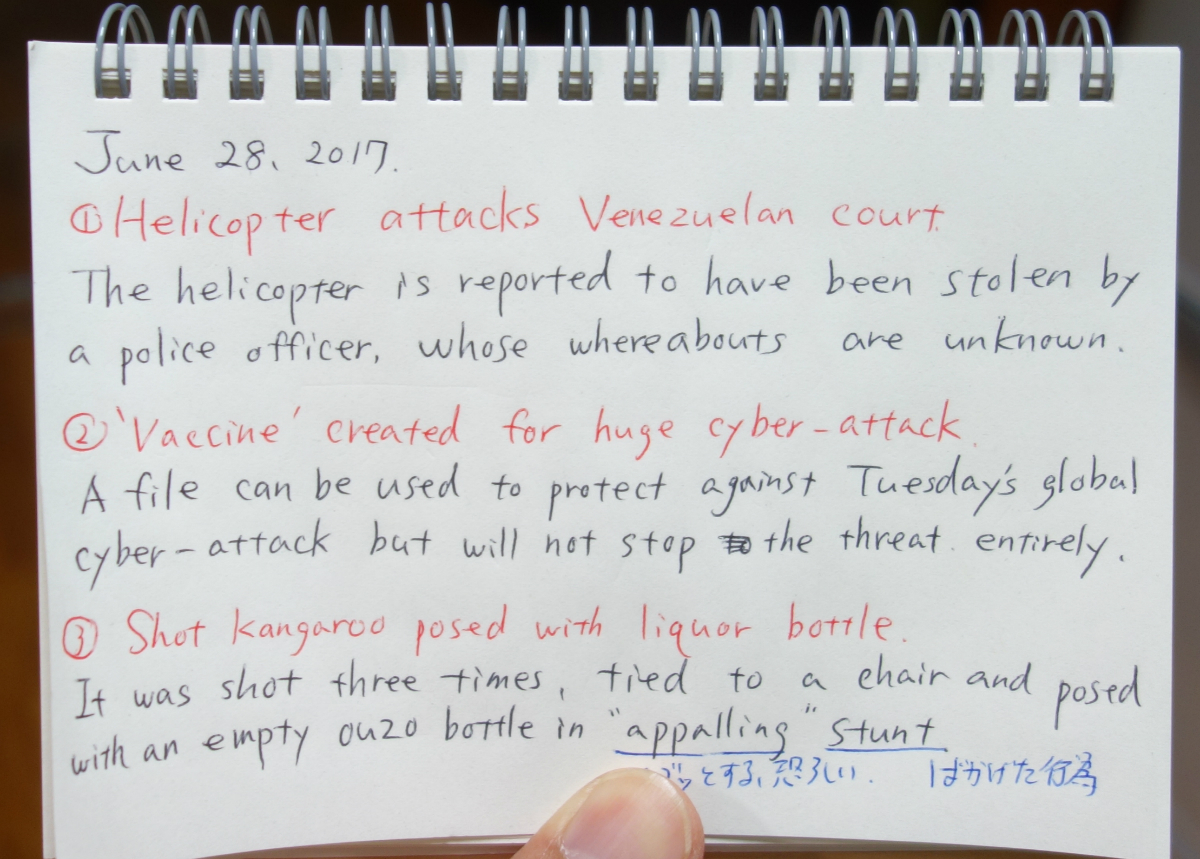 June 28, 2017.
① Helicopter attacks Venezuelan court.
The helicopter is reported to have been stolen by
a police officer, whose whereabouts are unknown.
② 'Vaccine' created for huge cyber-attack.
A file can be used to protect against Tuesday's global
cyber-attack but will not stop the threat entirely.
③ Shot kangaroo posed with liquor bottle.
It was shot three times, tied to a chair and posed
with an empty ouzo bottle in "appalling" stunt
っとする、恐ろしい. ばかげた行為